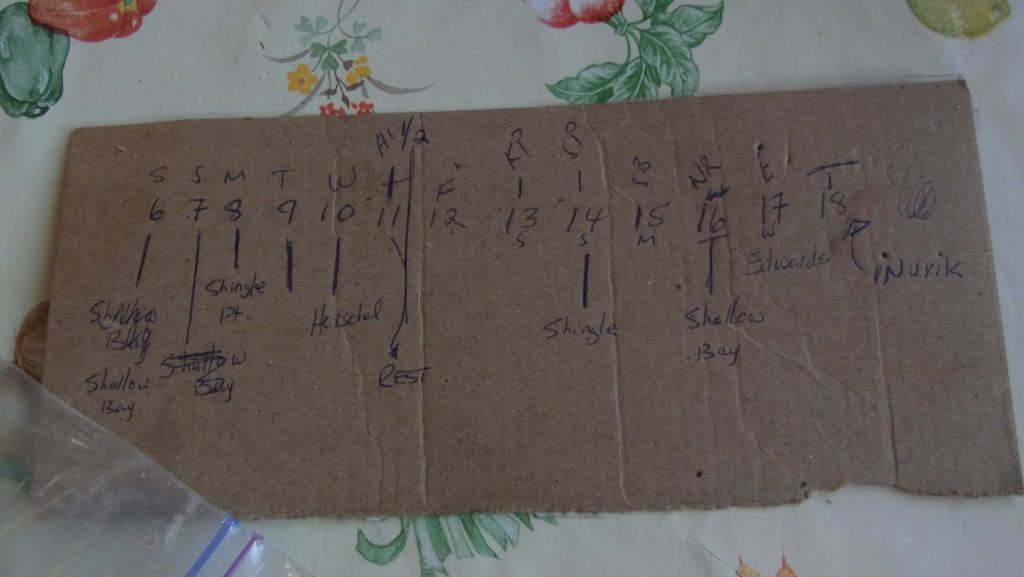 1/2
S S M T W F
6 7 8 9 10 11 12 13 14 15 16 17 18
S S M
Shingle
Pt.
Herschel
REST
Shallow
Bay
Shallow
Bay
Shingle
Shallow
Bay
Edwards
iNurik